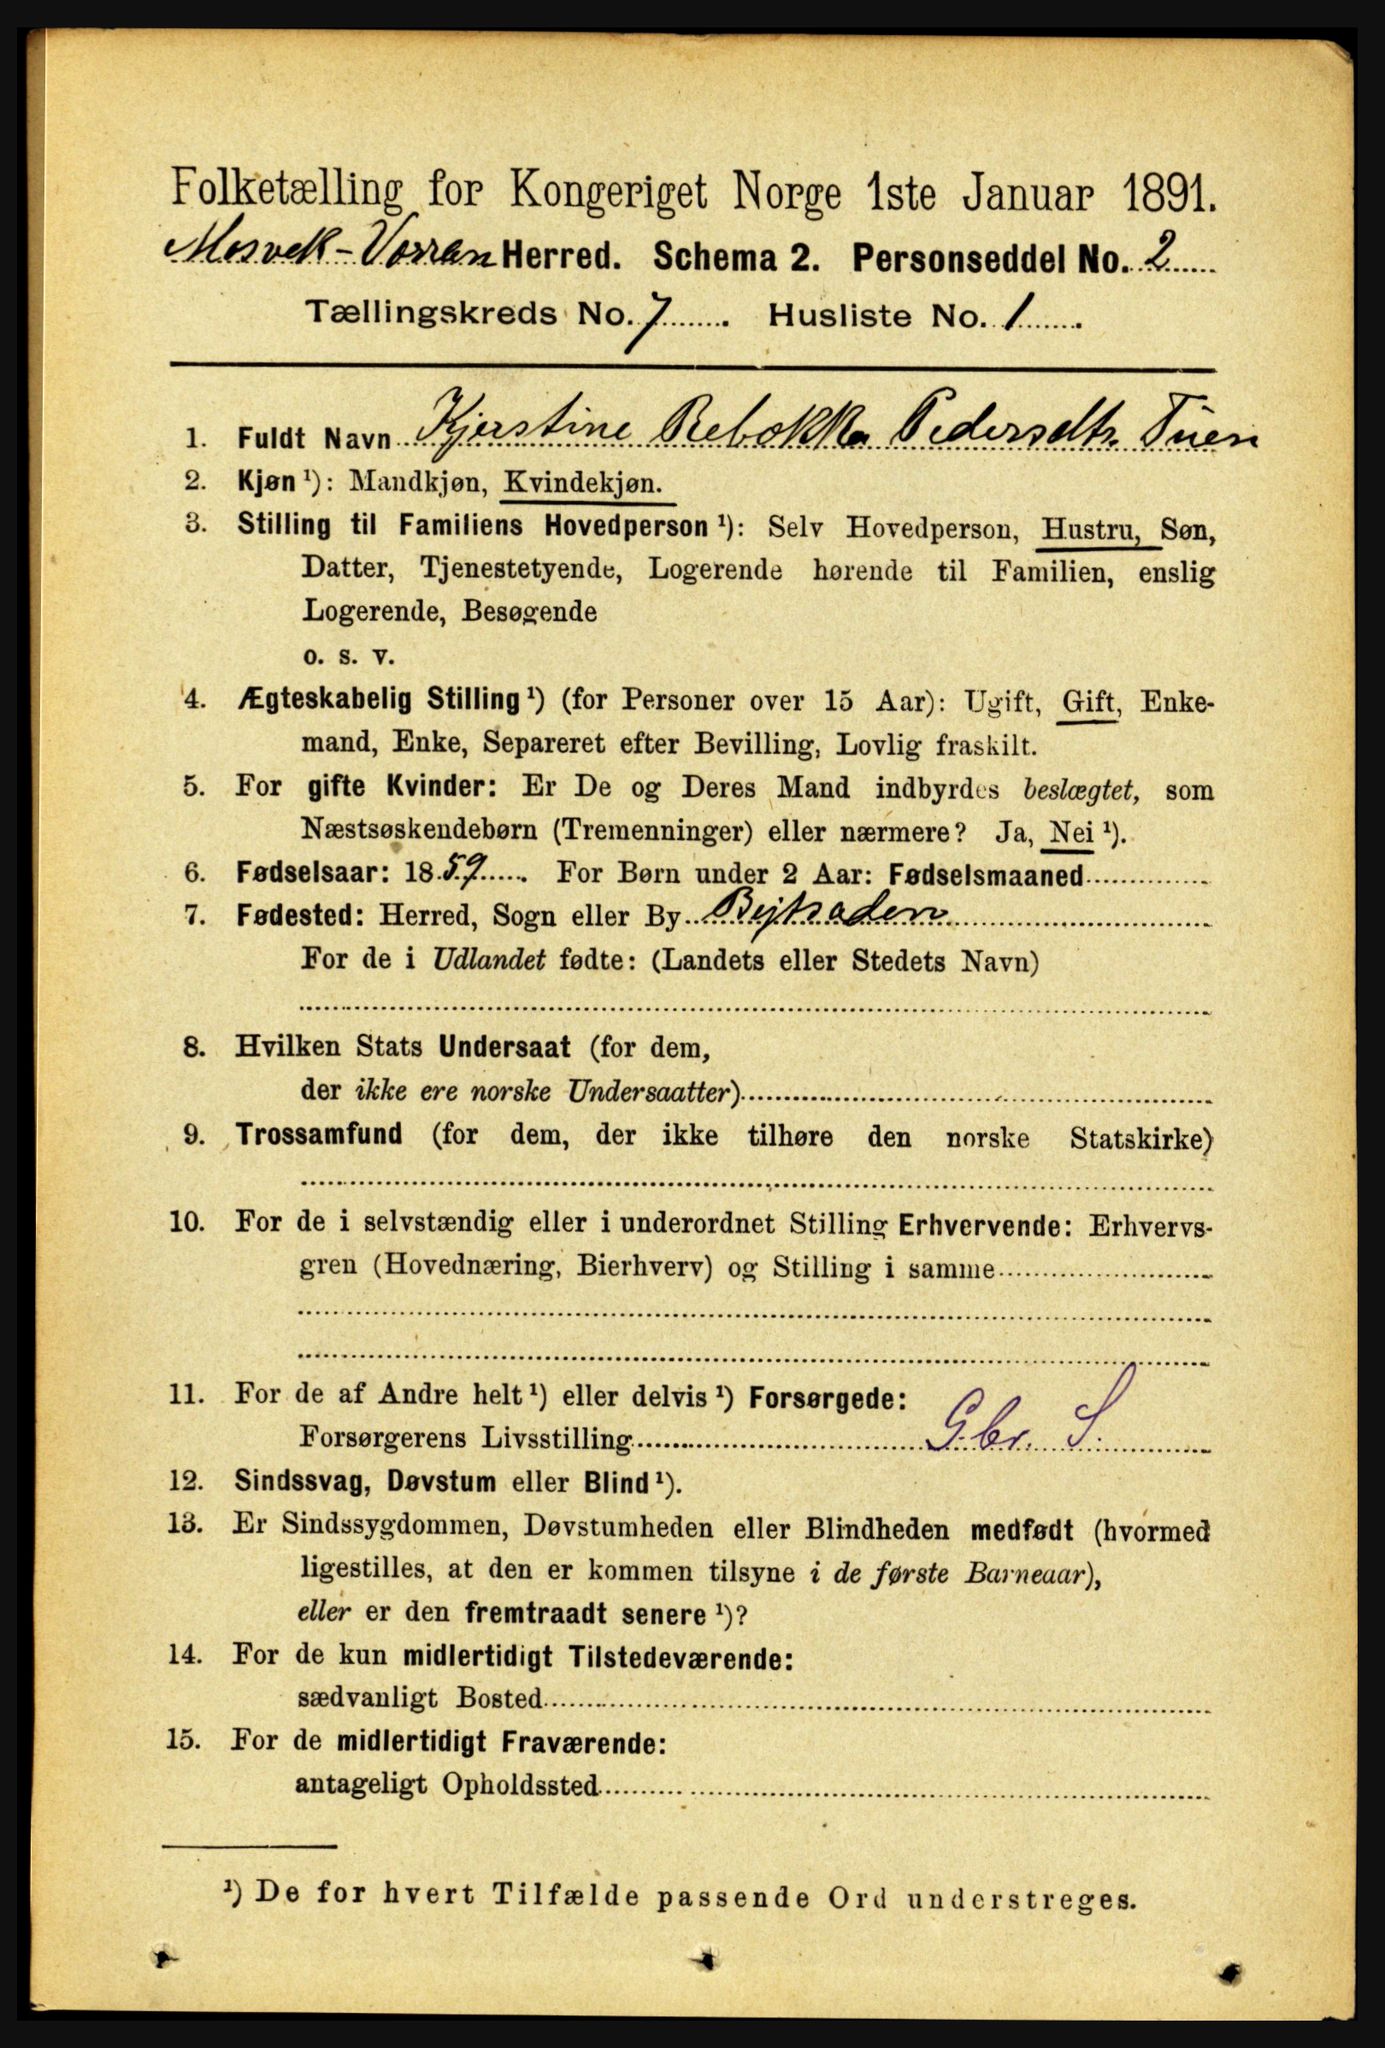 Folketælling for Kongeriget Norge 1ste Januar 1891.
Mosvek-Vorran Herred. Schema 2. Personseddel No. 2
Tællingskreds No. 7 Husliste No. 1
1. Fuldt Navn Kjerstine Rebekka Pedersdtr. Tuen
2. Kjøn ¹): Mandkjøn, Kvindekjøn.
3. Stilling til Familiens Hovedperson ¹): Selv Hovedperson, Hustru, Søn,
Datter, Tjenestetyende, Logerende hørende til Familien, enslig
Logerende, Besøgende
o. s. v.
4. Ægteskabelig Stilling ¹) (for Personer over 15 Aar): Ugift, Gift, Enke-
mand, Enke, Separeret efter Bevilling, Lovlig fraskilt.
5. For gifte Kvinder: Er De og Deres Mand indbyrdes beslægtet, som
Næstsøskendebørn (Tremenninger) eller nærmere? Ja, Nei ¹).
6. Fødselsaar: 1859. For Børn under 2 Aar: Fødselsmaaned
7. Fødested: Herred, Sogn eller By Bejtstaden
For de i Udlandet fødte: (Landets eller Stedets Navn)
8. Hvilken Stats Undersaat (for dem,
der ikke ere norske Undersaatter)
9. Trossamfund (for dem, der ikke tilhøre den norske Statskirke)
10. For de i selvstændig eller i underordnet Stilling Erhvervende: Erhvervs-
gren (Hovednæring, Bierhverv) og Stilling i samme
11. For de af Andre helt ¹) eller delvis ¹) Forsørgede:
Forsørgerens Livsstilling Gbr. S.
12. Sindssvag, Døvstum eller Blind ¹).
13. Er Sindssygdommen, Døvstumheden eller Blindheden medfødt (hvormed
ligestilles, at den er kommen tilsyne i de første Barneaar),
eller er den fremtraadt senere ¹)?
14. For de kun midlertidigt Tilstedeværende:
sædvanligt Bosted
15. For de midlertidigt Fraværende:
antageligt Opholdssted
¹) De for hvert Tilfælde passende Ord understreges.